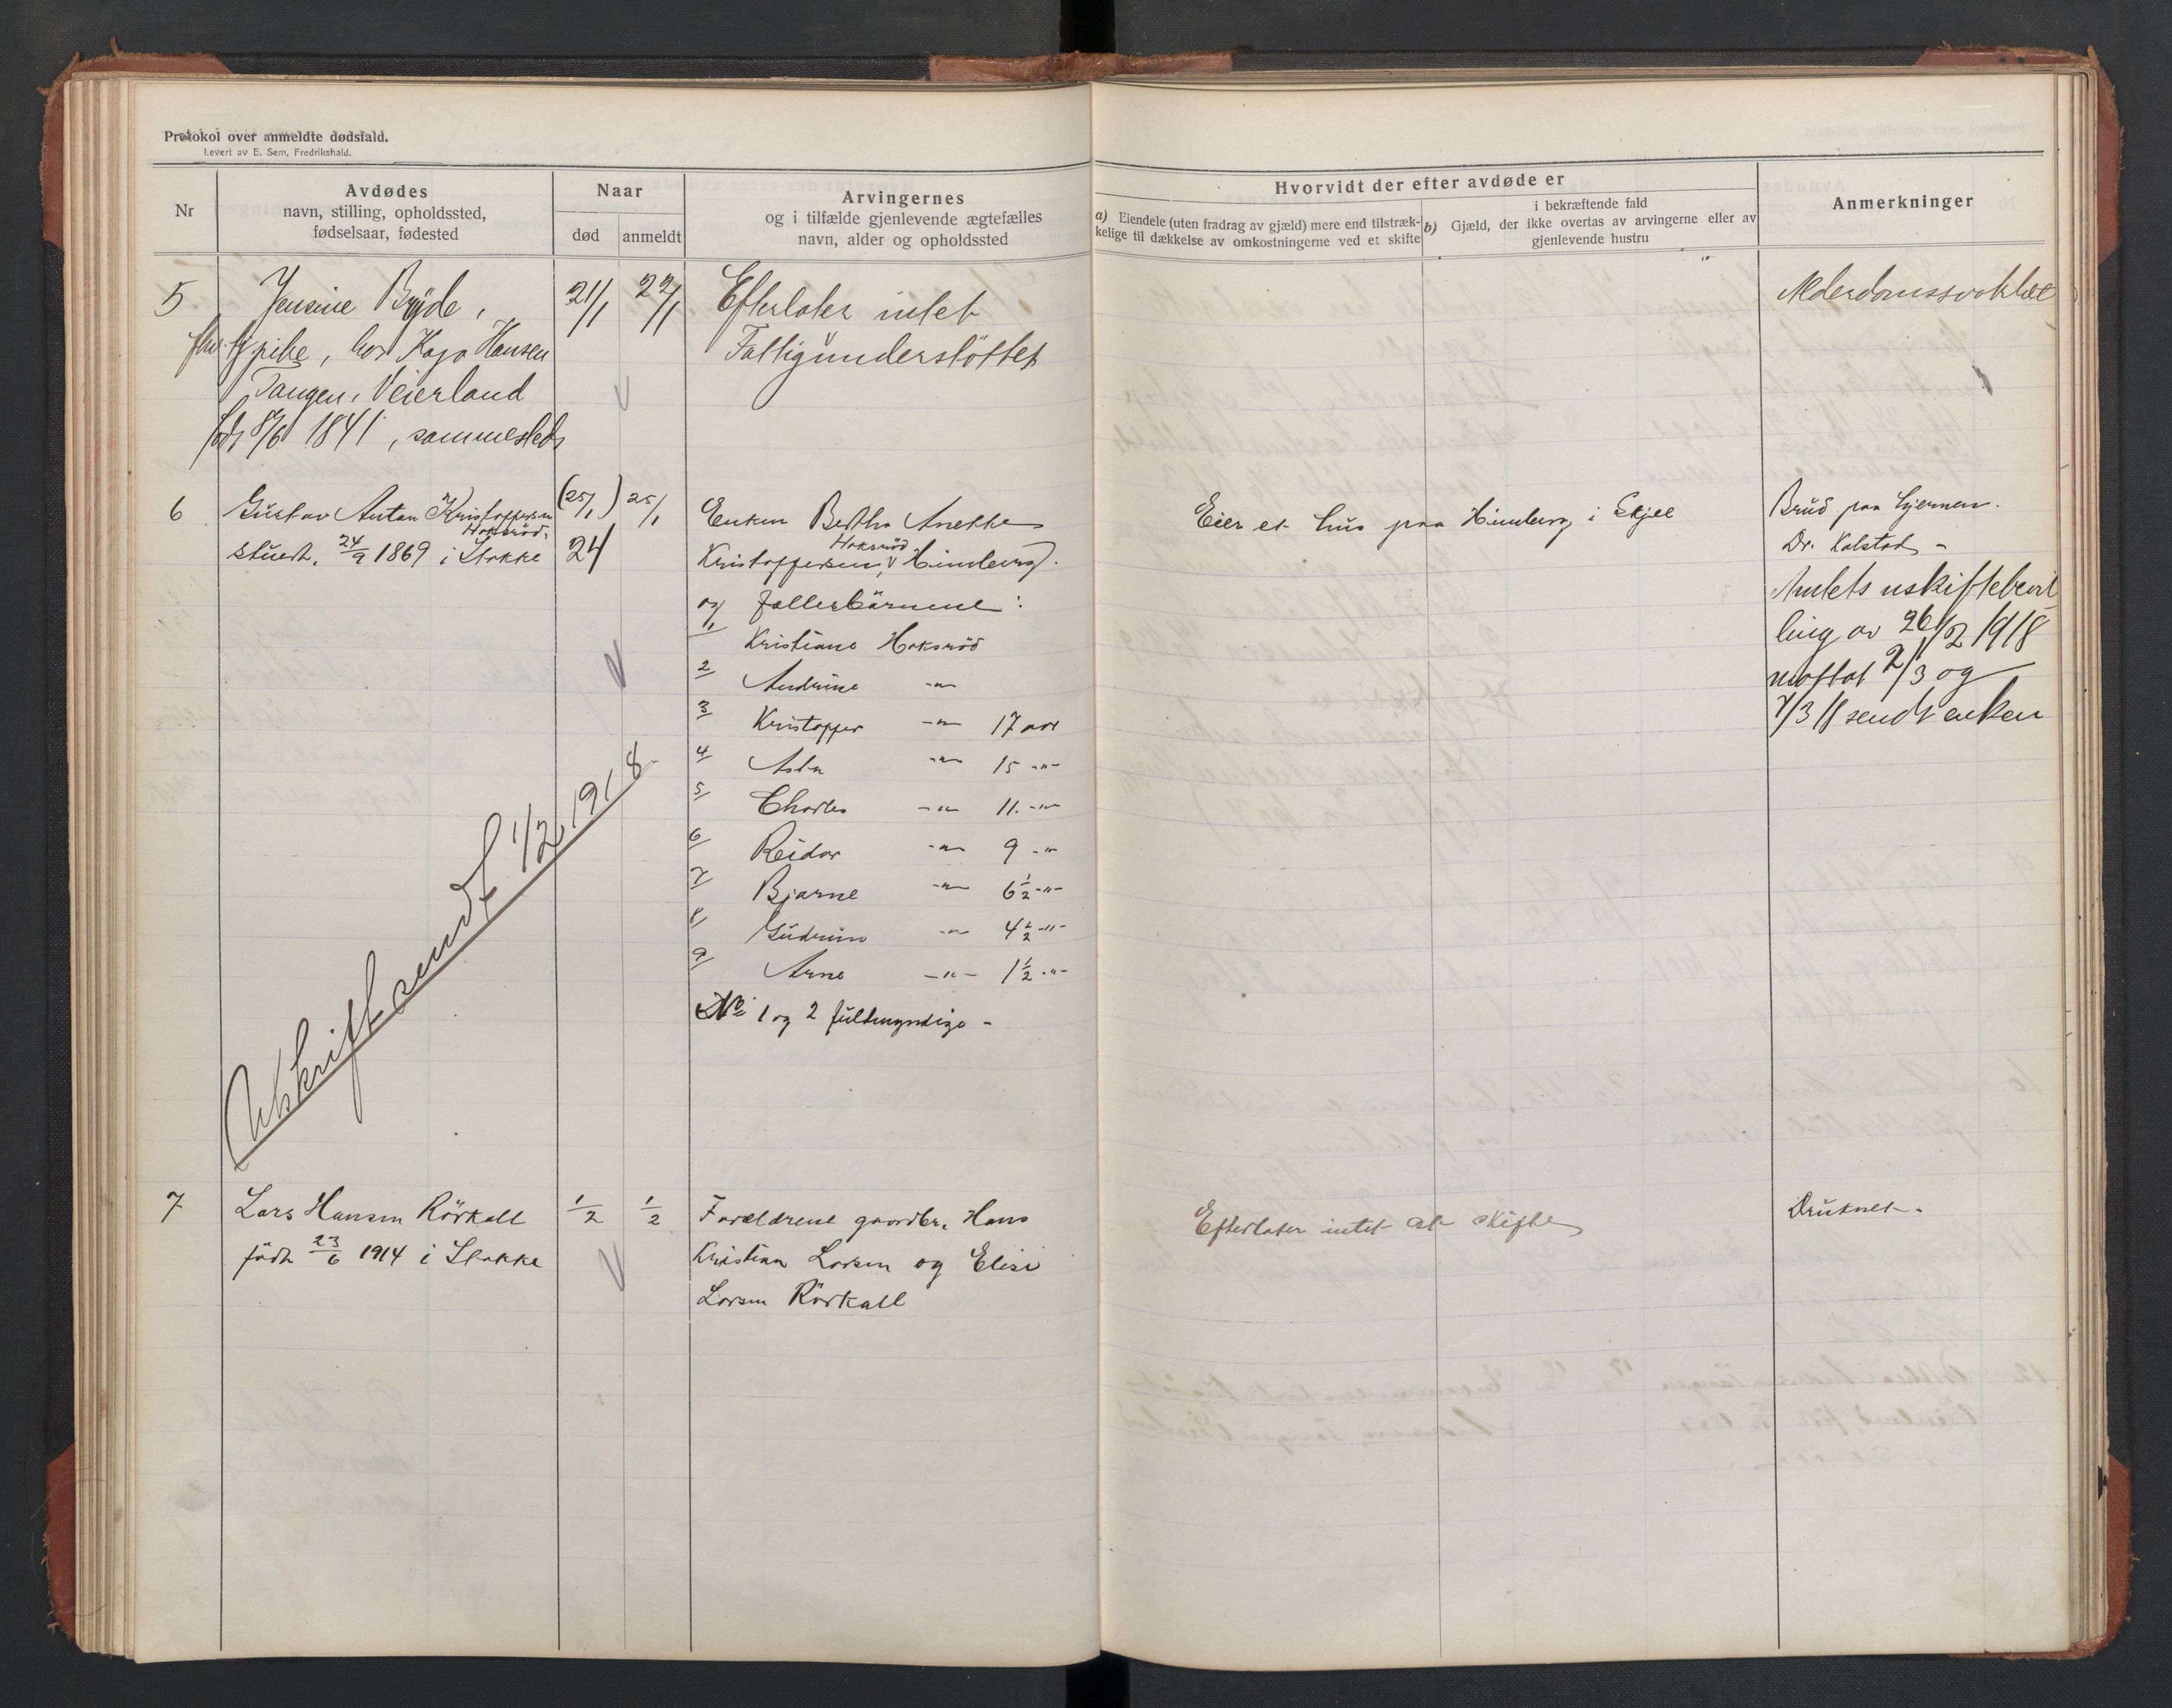 Protokol over anmeldte dødsfald.
Levert av E. Sem, Fredrikshald.
Nr
Avdødes
navn, stilling, opholdssted,
fødselsaar, fødested
Naar
død
anmeldt
Arvingernes
og i tilfælde gjenlevende ægtefælles
navn, alder og opholdssted
Hvorvidt der efter avdøde er
a) Eiendele (uten fradrag av gjæld) mere end tilstræk-
kelige til dækkelse av omkostningerne ved et skifte
i bekræftende fald
b) Gjæld, der ikke overtas av arvingerne eller av
gjenlevende hustru
Anmerkninger
5
Jensine Bryde,
fhv. tj.pike, hos Kaja Hansen
Tangen, Veierland
født 8/6 1841, sammesteds
21/1
22/1
Efterlater intet
Fattigunderstöttet
Alderdomssvakhet
6
Gustav Anton Kristoffersen
Hoksröd,
stuert, 24/9 1869 i Stokke
(25/1)
24
25/1
Enken Bertha Anette
Hoksröd
Kristoffersen, Himberg.
og fællesbörnene:
1/ Kristiane Hoksröd
2 Andrine -"-
3 Kristoffer -"- 17 aar
4 Asta -"- 15 -"-
5/ Charles -"- 11. -"-
6 Reidar -"- 9 -"-
7 Bjarne -"- 6 1/2 -"-
8/ Gudrun -"- 4 1/2 -"-
9 Arne -"- 1 1/2 -"-
No 1 og 2 fuldmyndige -
Eier et hus paa Himberg i Skjee
Brud paa hjernen.
Dr. Kolstad -
Amtets uskiftebevil
ling av 26/2 1918
mottat 2/3 og
7/3 18 sendt enken
Utskrift sendt 1/2 1918.
7
Lars Hansen Rörkoll
födt 23/6 1914 i Stokke
1/2
1/2
Forældrene gaardbr. Hans
Kristian Larsen og Elise
Larsen Rörkoll
Efterlater intet at skifte
Druknet.